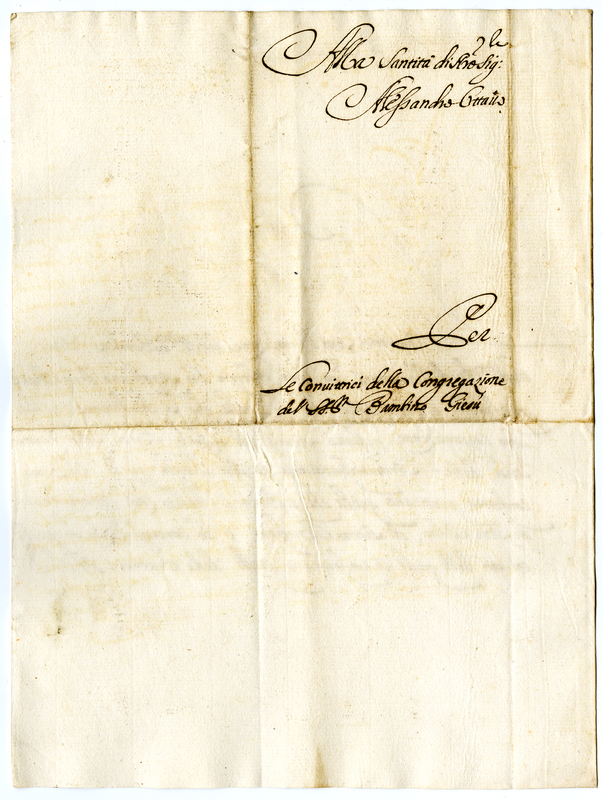 Alla Santità di Nr̃o Sig:re
Alessandro Ottavo
Per
Le Convittrici della Congregazione
del SS.º Bambino Giesù